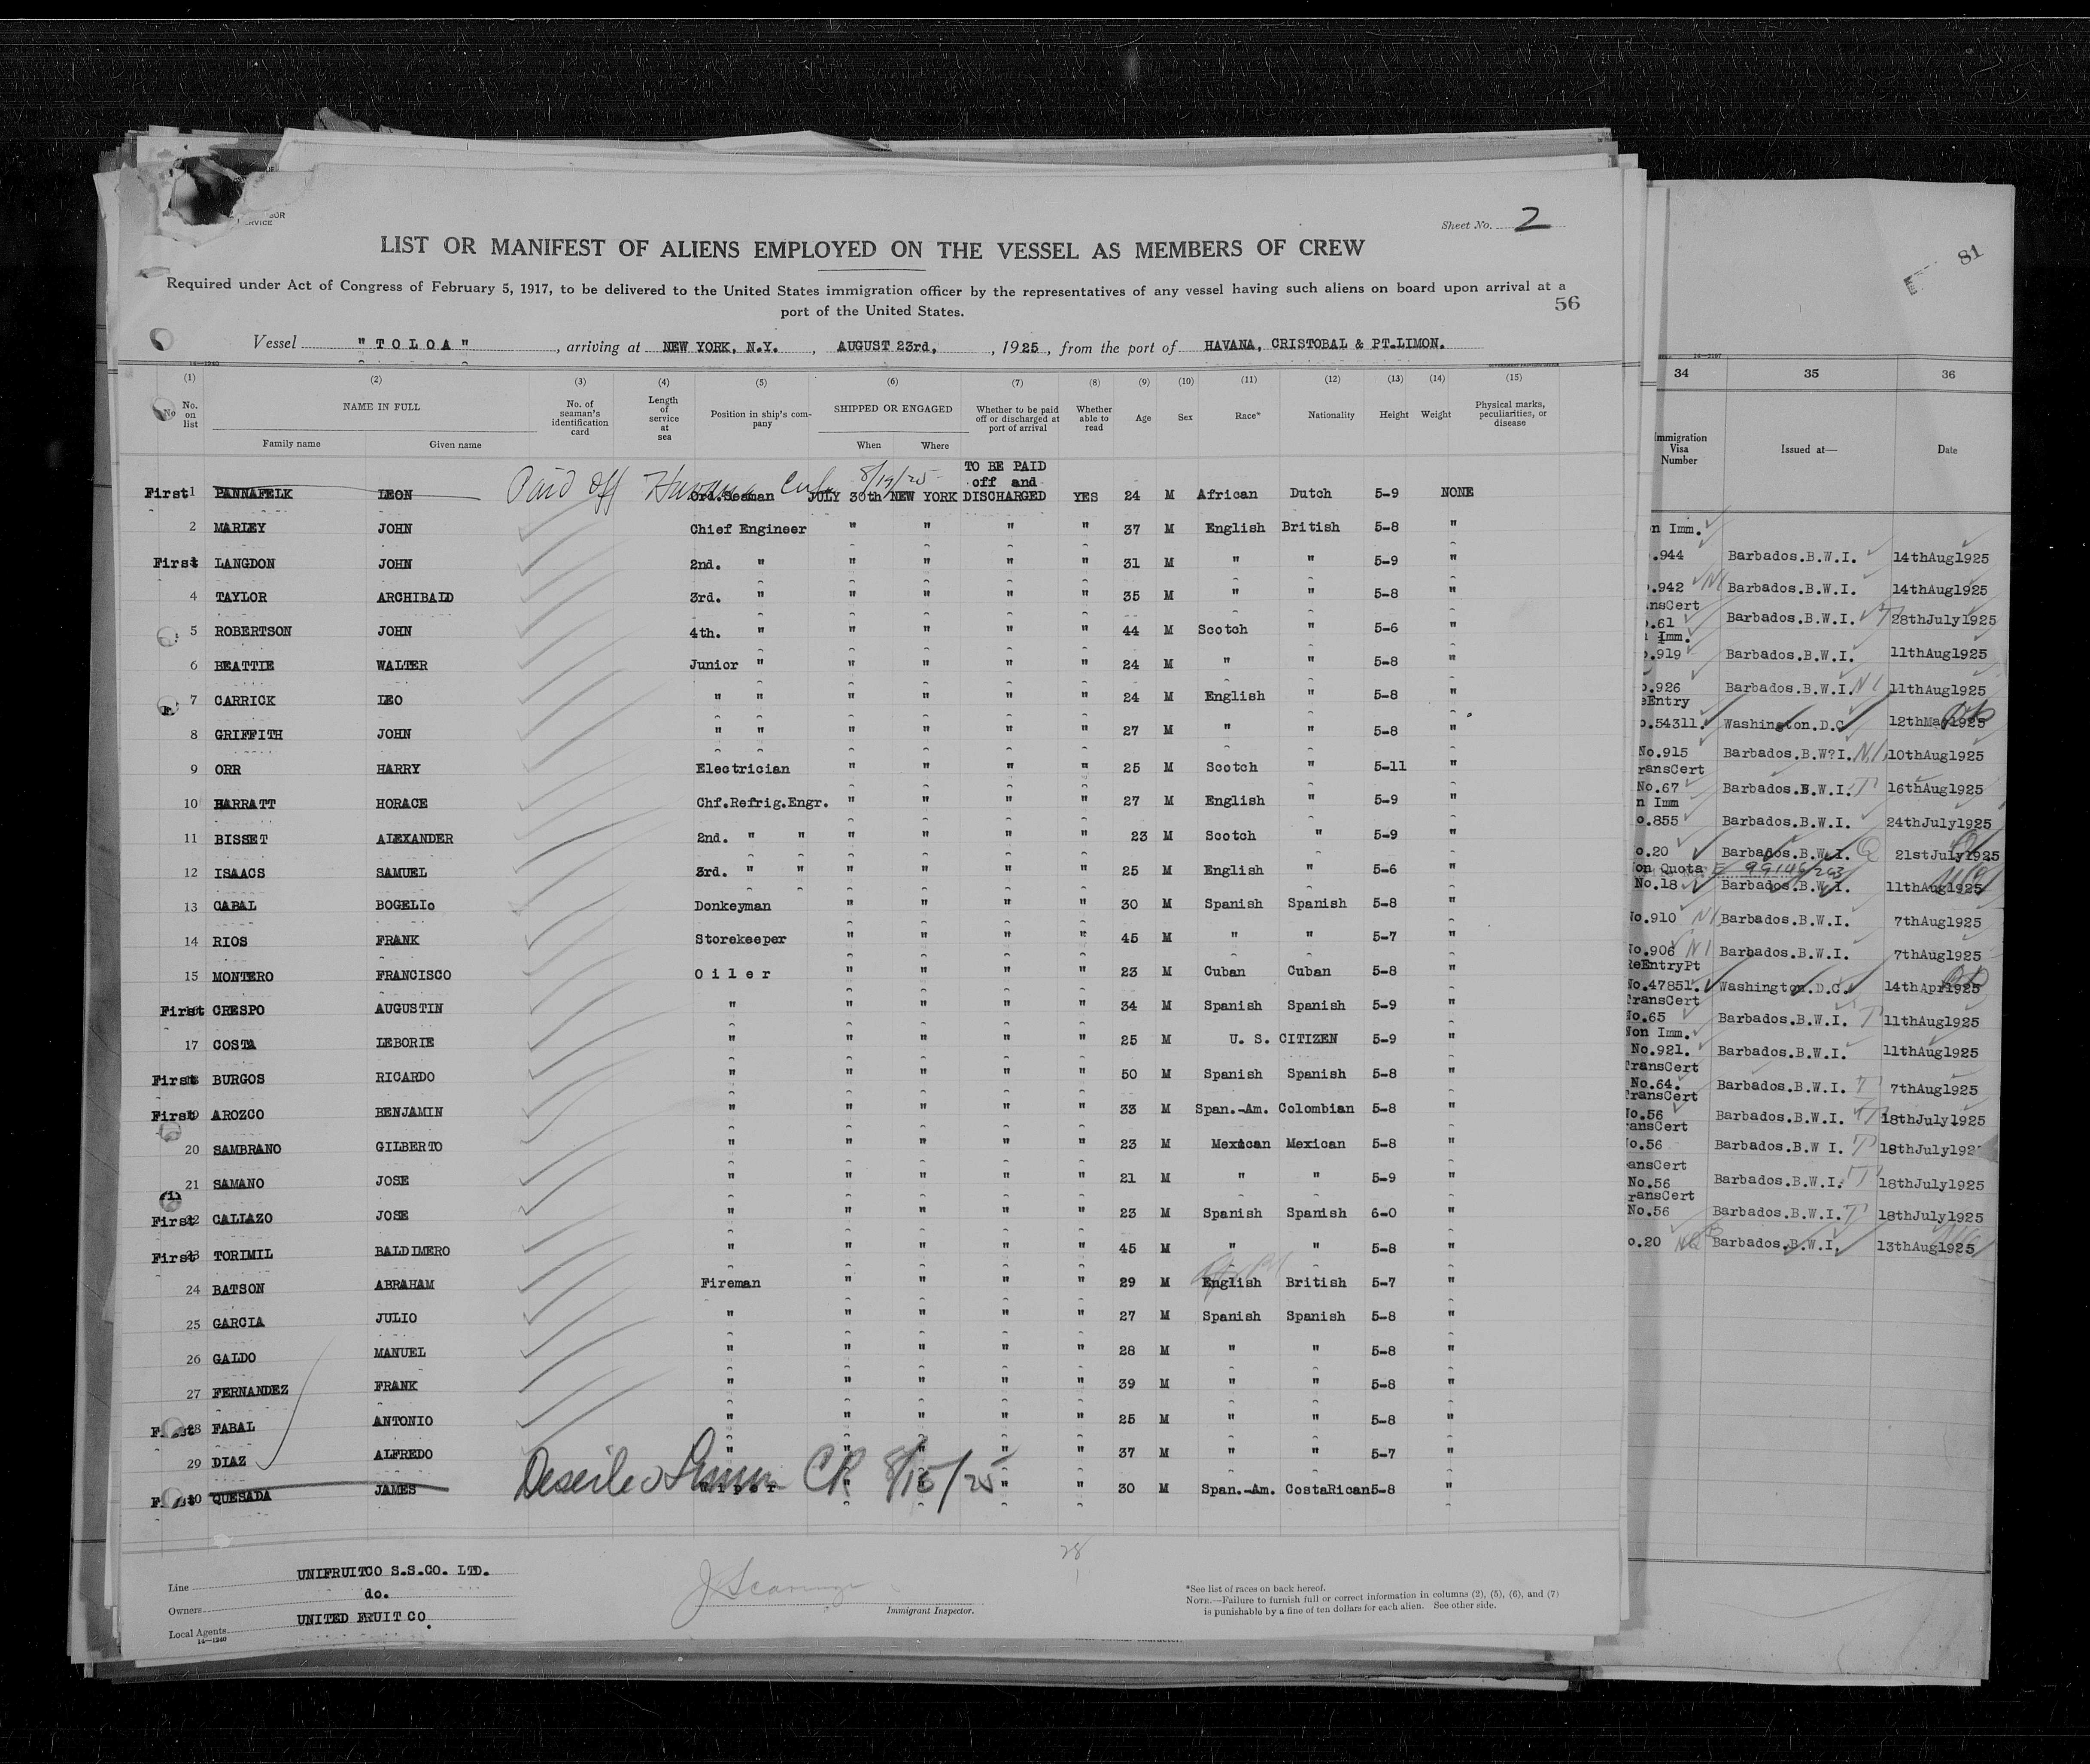 BOR
ERVICE
Sheet No. 2
LIST OR MANIFEST OF ALIENS EMPLOYED ON THE VESSEL AS MEMBERS OF CREW
Required under Act of Congress of February 5, 1917, to be delivered to the United States immigration officer by the representatives of any vessel having such aliens on board upon arrival at a
port of the United States.
56
Vessel "TOLOA", arriving at NEW YORK, N.Y., AUGUST 23rd, 1925, from the port of HAVANA, CRISTOBAL & PT.LIMON.
14—1240
(1) (2) (3) (4) (5) (6) (7) (8) (9) (10) (11) (12) (13) (14) (15)
No. on list NAME IN FULL No. of seaman's identification card Length of service at sea Position in ship's company SHIPPED OR ENGAGED Whether to be paid off or discharged at port of arrival Whether able to read Age Sex Race* Nationality Height Weight Physical marks, peculiarities, or disease
Family name Given name When Where
First 1 PANNAFELK LEON Paid Off Havana Cuba 8/19/25 Ord.Seaman JULY 30th NEW YORK TO BE PAID off and DISCHARGED YES 24 M African Dutch 5-9 NONE
2 MARLEY JOHN Chief Engineer " " " " 37 M English British 5-8 "
First LANGDON JOHN 2nd. " " " " " 31 M " " 5-9 "
4 TAYLOR ARCHIBALD 3rd. " " " " " 35 M " " 5-8 "
5 ROBERTSON JOHN 4th. " " " " " 44 M Scotch " 5-6 "
6 BEATTIE WALTER Junior " " " " " 24 M " " 5-8 "
7 CARRICK LEO " " " " " " 24 M English " 5-8 "
8 GRIFFITH JOHN " " " " " " 27 M " " 5-8 "
9 ORR HARRY Electrician " " " " 25 M Scotch " 5-11 "
10 BARRATT HORACE Chf.Refrig.Engr. " " " " 27 M English " 5-9 "
11 BISSET ALEXANDER 2nd. " " " " " " 23 M Scotch " 5-9 "
12 ISAACS SAMUEL 3rd. " " " " " " 25 M English " 5-6 "
13 CABAL BOGELIo Donkeyman " " " " 30 M Spanish Spanish 5-8 "
14 RIOS FRANK Storekeeper " " " " 45 M " " 5-7 "
15 MONTERO FRANCISCO Oiler " " " " 23 M Cuban Cuban 5-8 "
First CRESPO AUGUSTIN " " " " " 34 M Spanish Spanish 5-9 "
17 COSTA LEBORIE " " " " " 25 M U. S. CITIZEN 5-9 "
First BURGOS RICARDO " " " " " 50 M Spanish Spanish 5-8 "
First AROZCO BENJAMIN " " " " " 33 M Span.-Am. Colombian 5-8 "
20 SAMBRANO GILBERTO " " " " " 23 M Mexican Mexican 5-8 "
21 SAMANO JOSE " " " " " 21 M " " 5-9 "
First CALIAZO JOSE " " " " " 23 M Spanish Spanish 6-0 "
First TORIMIL BALDIMERO " " " " " 45 M " " 5-8 "
24 BATSON ABRAHAM Fireman " " " " 29 M English British 5-7 "
25 GARCIA JULIO " " " " " 27 M Spanish Spanish 5-8 "
26 GALDO MANUEL " " " " " 28 M " " 5-8 "
27 FERNANDEZ FRANK " " " " " 39 M " " 5-8 "
First FABAL ANTONIO " " " " " 25 M " " 5-8 "
29 DIAZ ALFREDO " " " " " 37 M " " 5-7 "
First QUESADA JAMES Limon CR 8/15/25 " " 30 M Span.-Am. CostaRican 5-8 "
28
Line UNIFRUITCO S.S.CO. LTD.
Owners do.
Local Agents UNITED FRUIT CO.
14—1240
Immigrant Inspector.
*See list of races on back hereof.
NOTE.—Failure to furnish full or correct information in columns (2), (5), (6), and (7)
is punishable by a fine of ten dollars for each alien. See other side.
81
14—3197
34 35 36
Immigration Visa Number Issued at— Date
n Imm.
.944 Barbados.B.W.I. 14thAug1925
.942 NI Barbados.B.W.I. 14thAug1925
nsCert
.61 Barbados.B.W.I. 28thJuly1925
Imm.
.919 Barbados.B.W.I. 11thAug1925
.926 Barbados.B.W.I. NI 11thAug1925
eEntry
.54311. Washington.D.C. 12thMay1925
No.915 Barbados.B.W?I. NI 10thAug1925
ransCert
No.67 Barbados.B.W.I. T 16thAug1925
n Imm
o.855 Barbados.B.W.I. 24thJuly1925
o.20 Barbados.B.W.I. Q 21stJuly1925
on Quota
No.18 Barbados.B.W.I. 11thAug1925
No.910 NI Barbados.B.W.I. 7thAug1925
No.906 NI Barbados.B.W.I. 7thAug1925
ReEntryPt
No.47851. Washington.D.C. 14thApr1925
TransCert
No.65 Barbados.B.W.I. T 11thAug1925
Non Imm.
No.921. Barbados.B.W.I. 11thAug1925
TransCert
No.64. Barbados.B.W.I. T 7thAug1925
TransCert
No.56 Barbados.B.W.I. T 18thJuly1925
ransCert
No.56 Barbados.B.W I. T 18thJuly192
ansCert
No.56 Barbados.B.W.I. T 18thJuly1925
ransCert
No.56 Barbados.B.W.I. T 18thJuly1925
o.20 NQ Barbados.B.W.I. 13thAug1925